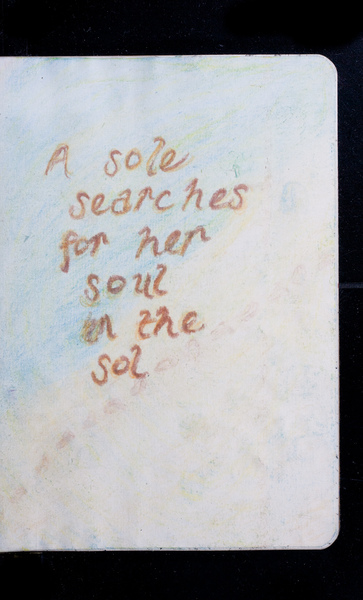 A sole
searches
for her
soul
in the
sol